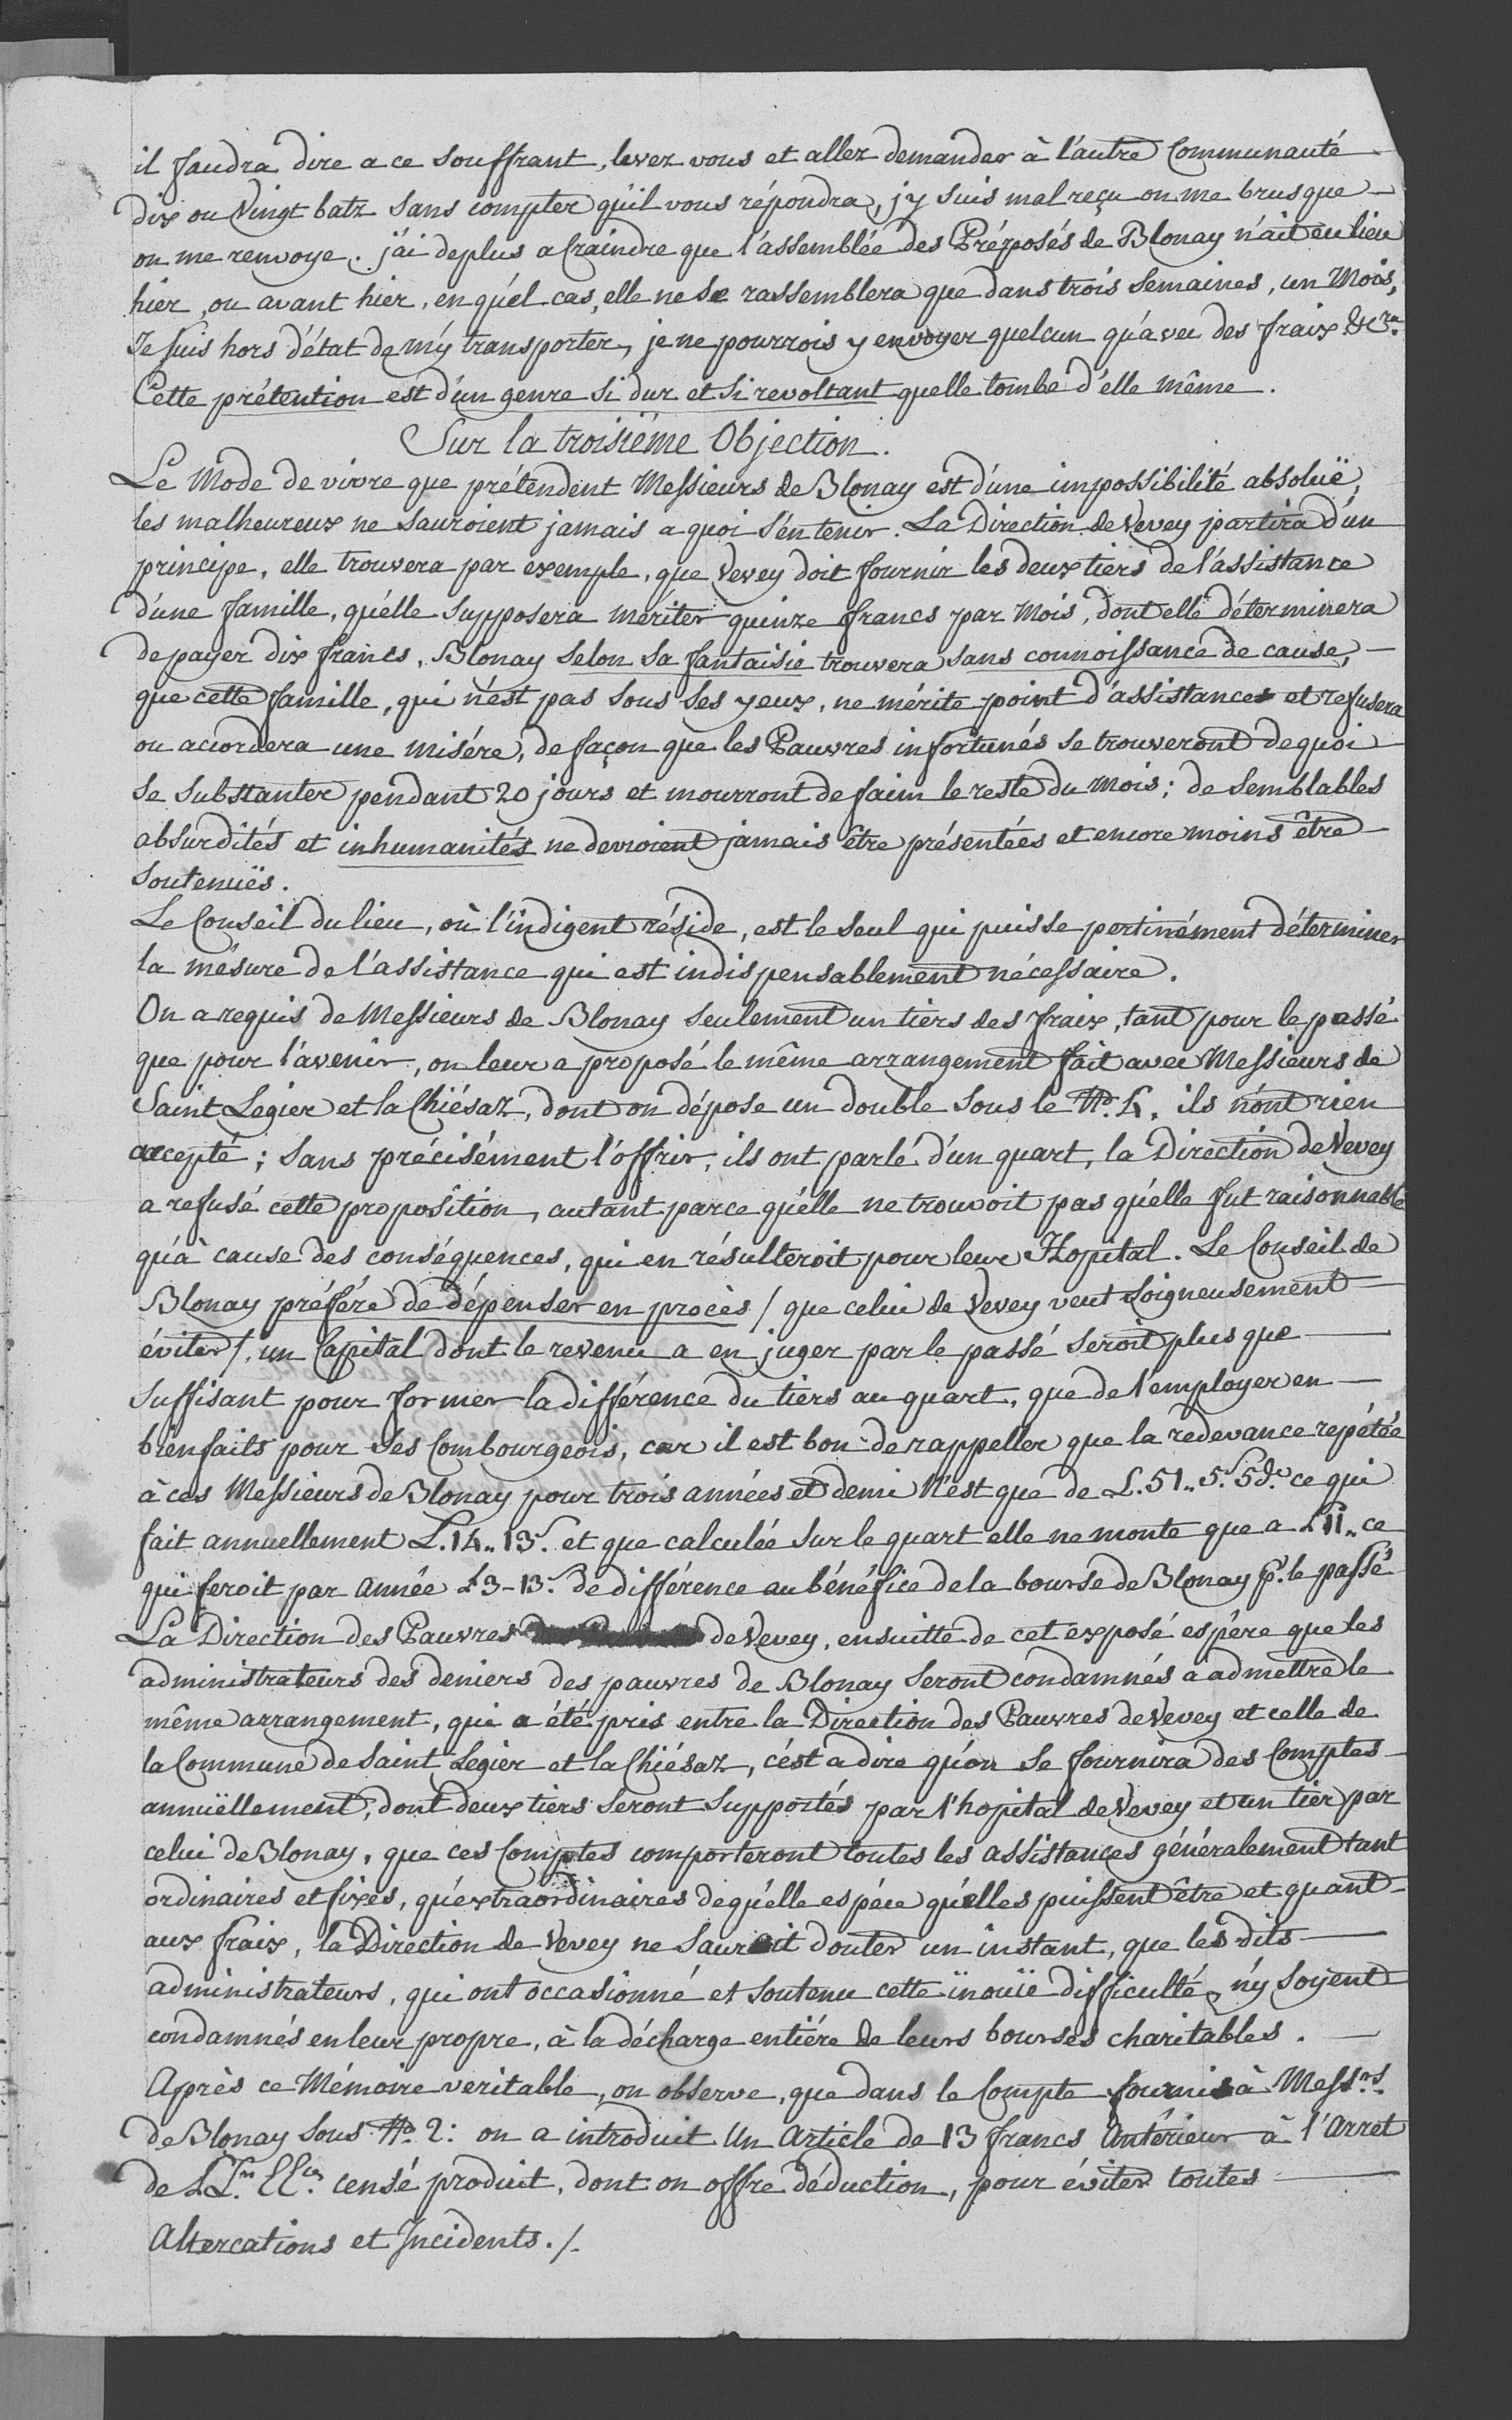 il faudra dire a ce souffrant, levez vous et allez demander à l'autre Communauté
dix ou Vingt batz sans compter qu'il vous répondra, j'y suis mal reçu on me brusque —
on me renvoye. j'ai deplus a Craindre que l'assemblée des Préposés de Blonay n'ait eu lieu
hier, ou avant hier, en quél cas, elle ne se rassemblera que dans trois semaines, un Mois,
Je suis hors d'état de m'y transporter, je ne pourrois y envoyer quelcun qu'avec des fraix &c.ra
Cette prétention est d'un genre si dur et si revoltant quelle tombe d'elle même.
Sur la troisiéme Objection.
Le Mode de vivre que prétendent Messieurs de Blonay est d'une impossibilité absoluë,
les malheureux ne sauroient jamais a quoi s'en tenir. La Direction de Vevey partira d'un
principe, elle trouvera par exemple, que Vevey doit fournir les deux tiers de l'assistance
d'une famille, qu'élle supposera mériter quinze francs par Mois, dont elle déterminera
de payer dix francs, Blonay selon sa fantaisie trouvera sans connoissance de cause, —
que cette famille, qui n'est pas sous ses yeux, ne mérite point d'assistance et refusera
ou accordera une misére, de façon que les Pauvres infortunés se trouveront dequoi
se substanter pendant 20 jours et mourront de faim le reste du mois; de semblables
absurdités et inhumanités ne devroient jamais être présentées et encore moins être —
soutenuës.
Le Conseil du lieu, où l'indigent réside, est le seul qui puisse pertinément déterminer
la mésure de l'assistance qui est indispensablement nécessaire.
On a requis de Messieurs de Blonay seulement un tiers des fraix, tant pour le passé
que pour l'avenir, on leur a proposé le même arrangement fait avec Messieurs de
Saint Legier et la Chiésaz, dont on dépose un double sous le No. 4. ils n'ont rien
accepté; sans précisément l'offrir, ils ont parlé d'un quart, la Direction de Vevey
a refusé cette proposition, autant parce qu'élle ne trouvoit pas qu'élle fut raisonnable
qu'à cause des conséquences, qui en résulteroit pour leur Hopital. Le Conseil de
Blonay préfére de dépenser en procès / que celui de Vevey veut soigneusement —
éviter /. un Capital dont le revenu a en juger par le passé seroit plus que —
suffisant pour former la différence du tiers au quart, que de l'employer en —
bienfaits pour ses Combourgeois, car il est bon de rappeller que la redevance repétée
à ces Messieurs de Blonay pour trois années et demi n'est que de L. 51.. 5.s 5d.r ce qui
fait annuellement L. 14.. 13.s et que calculée sur le quart elle ne monte que a L 11.. ce
qui feroit par année L 3 - 13.s de différence au bénéfice de la bourse de Blonay p.r le passé
La Direction des Pauvres de Vevey, ensuitte de cet exposé espére que les
administrateurs des deniers des pauvres de Blonay seront condamnés a admettre le
même arrangement, qui a été pris entre la Direction des Pauvres de Vevey et celle de
la Commune de Saint Legier et la Chiésaz, c'est a dire qu'on se fournira des Comptes
annuëllement, dont deux tiers seront supportés par l'hopital de Vevey et un tier par
celui de Blonay, que ces Comptes comporteront toutes les assistances généralement tant
ordinaires et fixes, qu'extraordinaires de qu'élle espéce qu'élles puissent être et quant —
aux fraix, la Direction de Vevey ne sauroit douter un instant, que les dits —
administrateurs, qui ont occasionné et soutenu cette inouïe difficulté, n'y soyent
condamnés en leur propre, à la décharge entiére de leurs bourses charitables. —
Après ce Mémoire veritable, on observe, que dans le Compte fourni à Mess.rs
de Blonay sous No. 2: on a introduit Un Article de 13 francs Antérieur à l'Arret
de LL.mes EE.ces censé produit, dont on offre déduction, pour éviter toutes —
Altercations et Incidents. /.